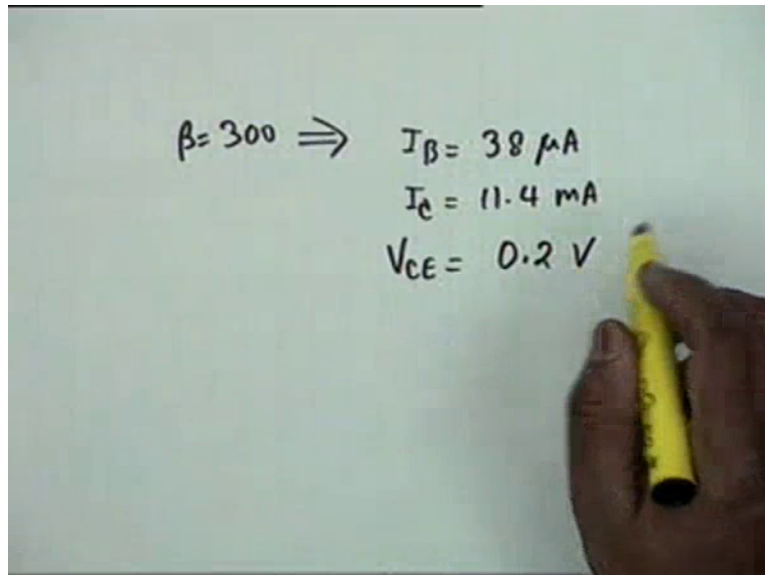 β = 300 ⟹ I_B = 38 μA
I_C = 11.4 mA
V_CE = 0.2 V